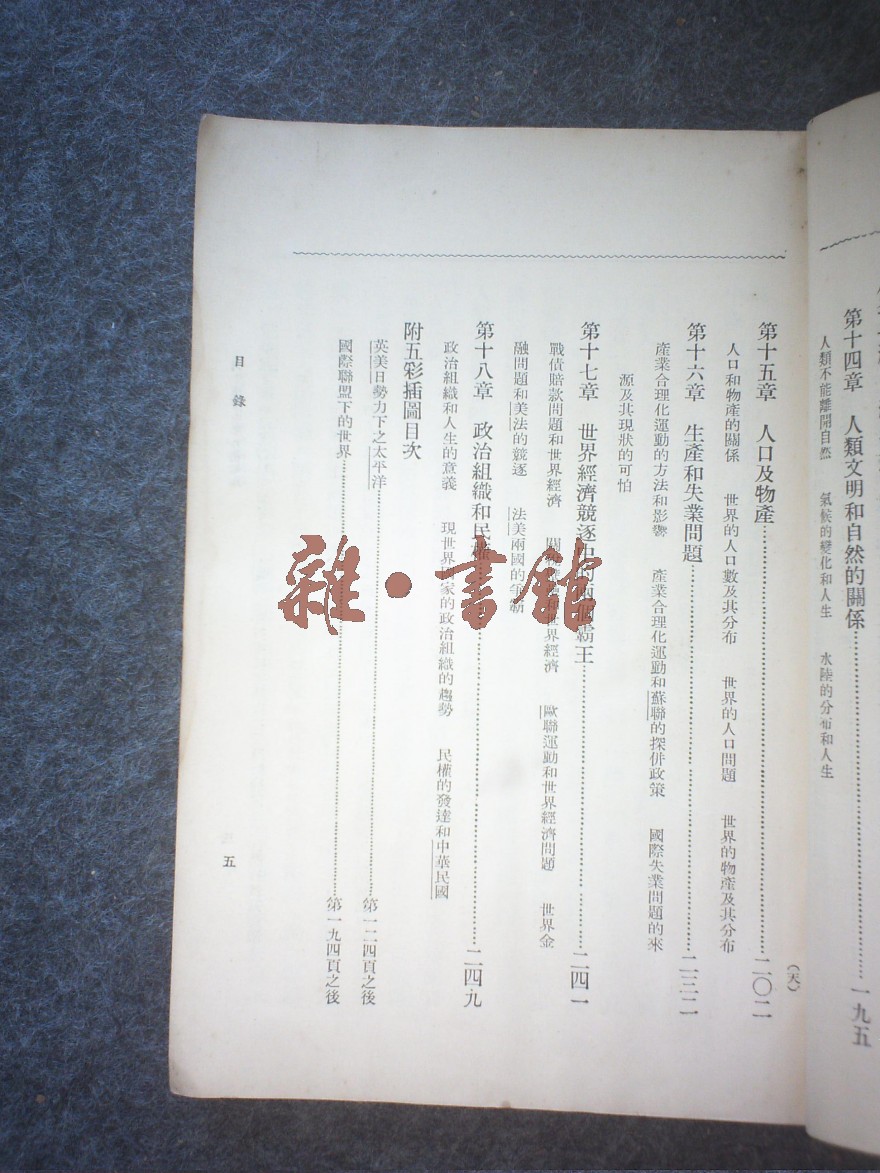 第十四章　人類文明和自然的關係……一九五
人類不能離開自然　氣候的變化和人生　水陸的分布和人生
（天）
第十五章　人口及物產……二〇二
人口和物產的關係　世界的人口數及其分布　世界的人口問題　世界的物產及其分布
第十六章　生產和失業問題……二三二
產業合理化運動的方法和影響　產業合理化運動和蘇聯的探併政策　國際失業問題的來
源及其現狀的可怕
第十七章　世界經濟競逐中的兩個霸王……二四一
戰債賠款問題和世界經濟　關稅　和世界經濟　歐聯運動和世界經濟問題　世界金
融問題和美法的競逐　法美兩國的爭霸
第十八章　政治組織和民權……二四九
政治組織和人生的意義　現世界國家的政治組織的趨勢　民權的發達和中華民國
附五彩插圖目次
英美日勢力下之太平洋……第一二四頁之後
國際聯盟下的世界……第一九四頁之後
目錄
五
雜·書館